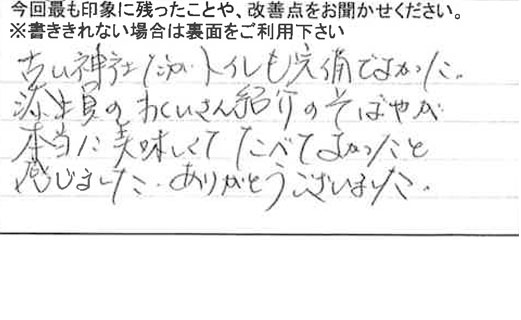 今回最も印象に残ったことや、改善点をお聞かせください。
※書ききれない場合は裏面をご利用下さい
古い神社だがトイレも完備でよかった。
添乗員のわくいさん紹介のそばやが
本当に美味しくてたべてよかったと
感じました。ありがとうございました。